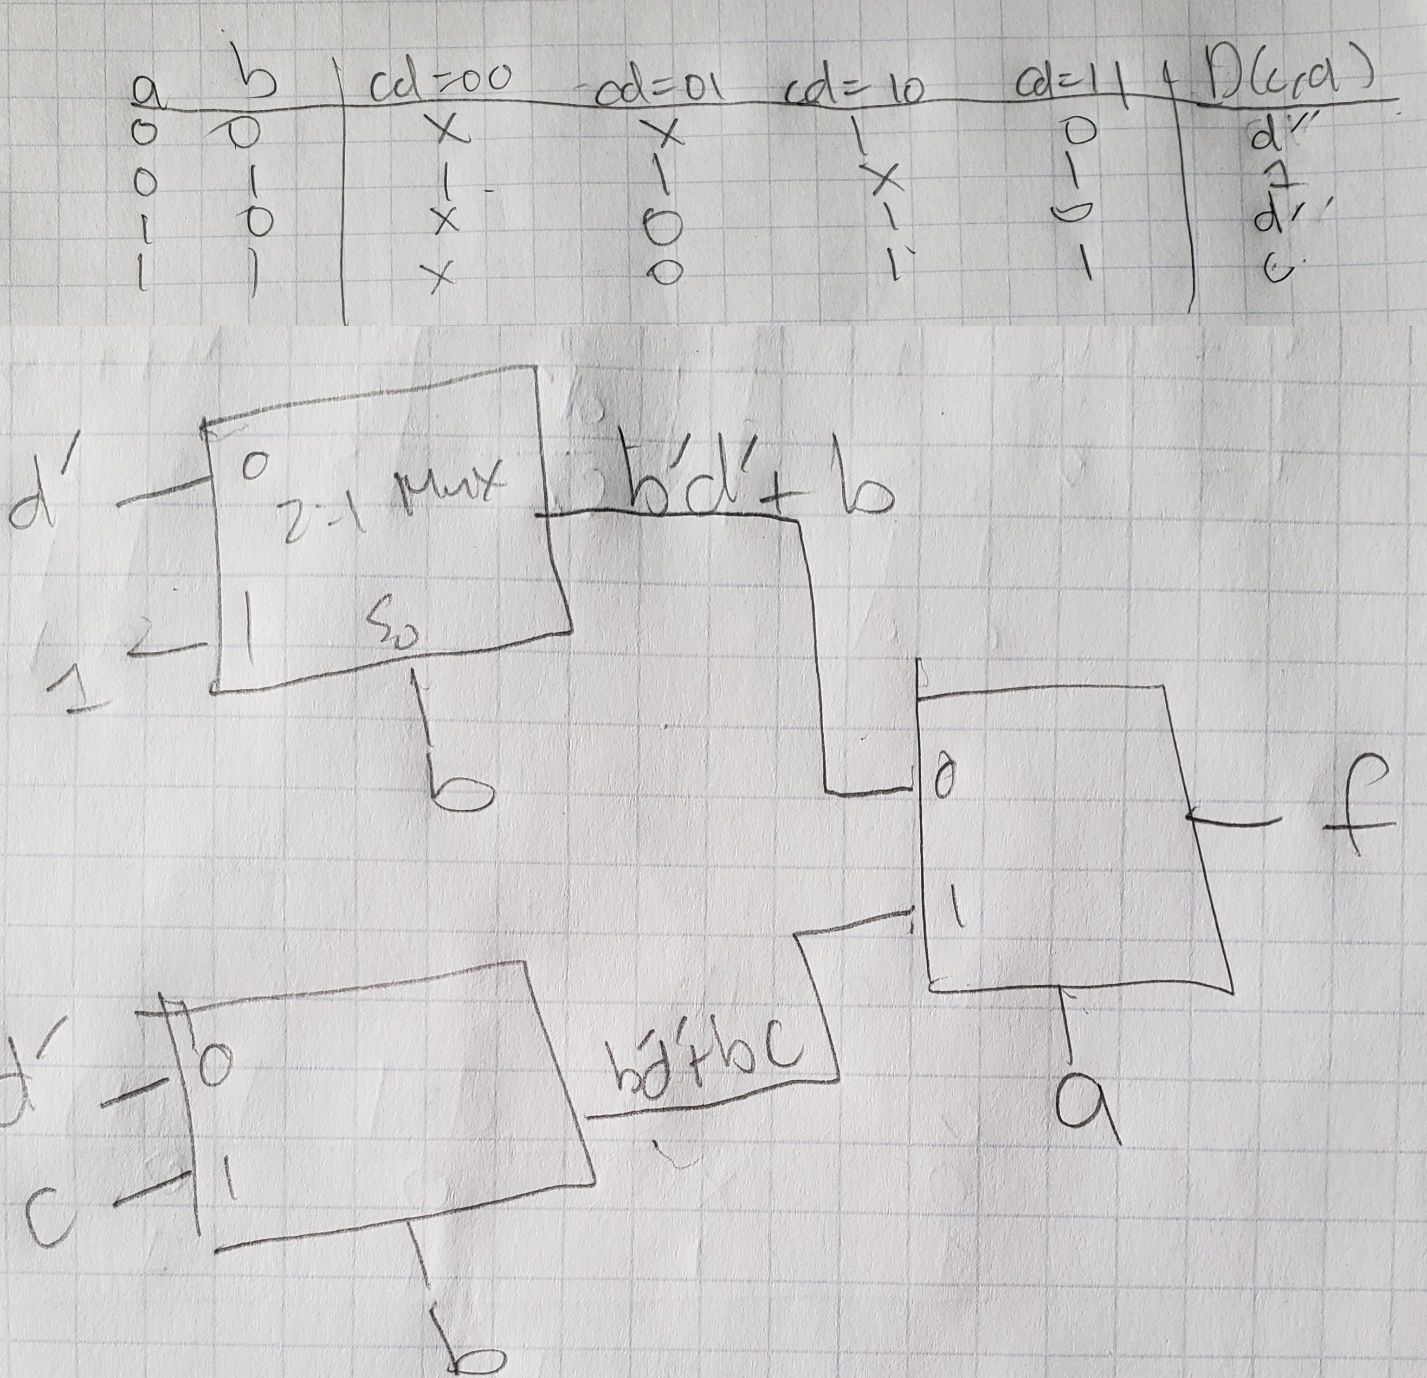 a b cd=00 cd=01 cd=10 cd=11 D(c,d)
0 0 X X 1 0 d''
0 1 1 1 X 1 1
1 0 X 0 1 0 d''
1 1 X 0 1 1 c
d' 0 2-1 Mux b'd'+b
1 1 S0
b
0 f
1
d' 0 b'd'+bc
a
c 1
b